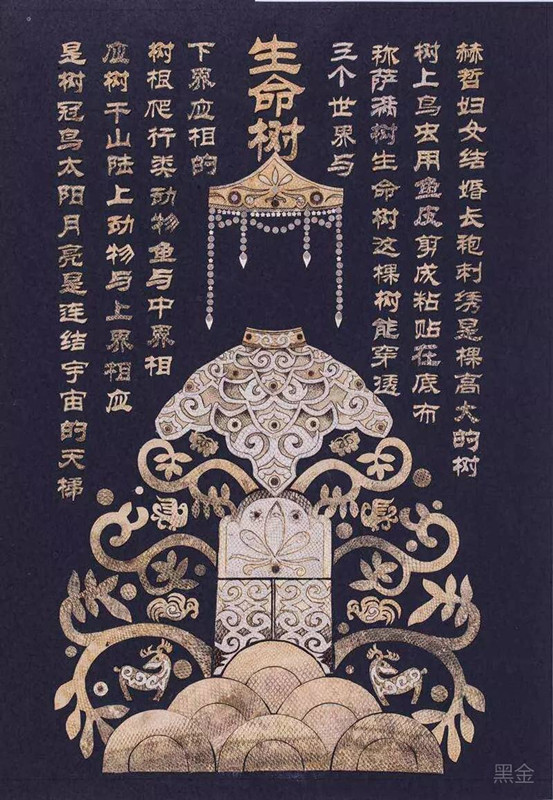 生命树
赫哲妇女结婚长袍刺绣是棵高大的树
树上鸟虫用鱼皮剪成粘贴在底布
称萨满树生命树这棵树能穿透
三个世界与
下界应相的
树根爬行类动物鱼与中界相
应树干山陆上动物与上界相应
是树冠鸟太阳月亮是连结宇宙的天梯
黑金